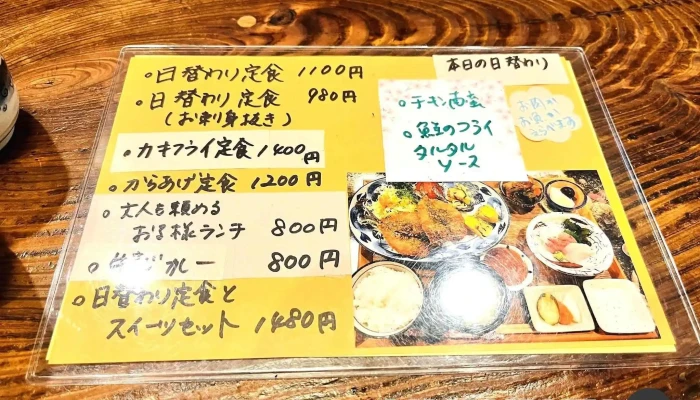 日替わり定食 1100円
日替わり定食 980円
(お刺身抜き)
カキフライ定食 1400円
からあげ定食 1200円
大人も頼める
お子様ランチ 800円
カレー 800円
日替わり定食と
スイーツセット 1480円
本日の日替わり
チキン南蛮
鮭のフライ
タルタル
ソース